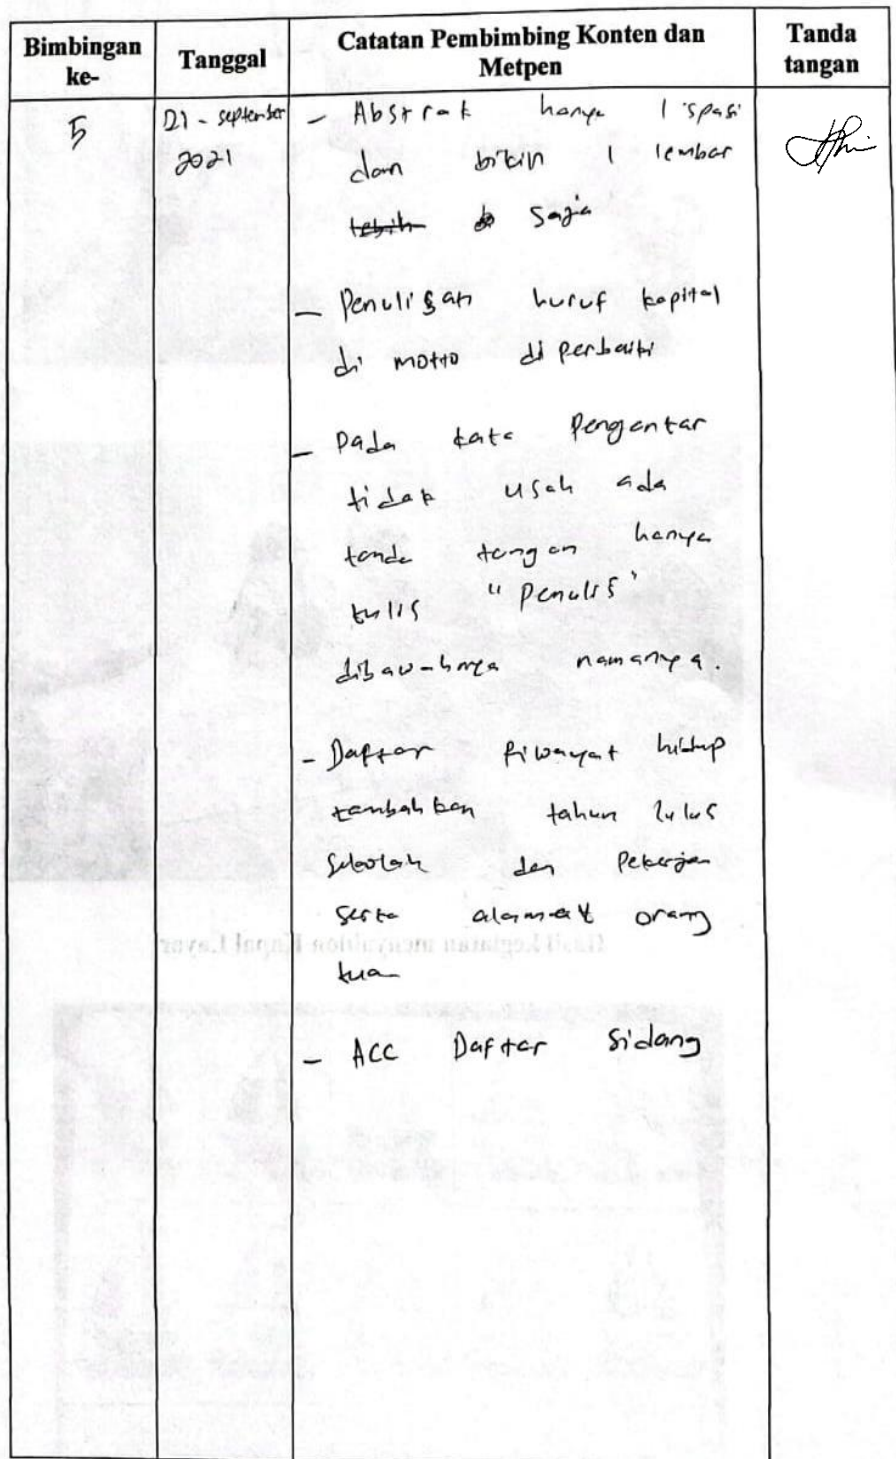 Bimbingan ke-
Tanggal
Catatan Pembimbing Konten dan Metpen
Tanda tangan
5
21 - september
2021
- Abstrak hanya 1 spasi
dan bikin 1 lembar
lebih saja
- Penulisan huruf kapital
di motto diperbaiki
- Pada kata Pengantar
tidak usah ada
tanda tangan hanya
tulis "Penulis"
dibawahnya namanya.
- Daftar Riwayat hidup
tambahkan tahun lulus
Sekolah dan Pekerjan
serta alamat orang
tua
Hasil kegiatan menyablon Kapal Layar
- ACC Daftar Sidang